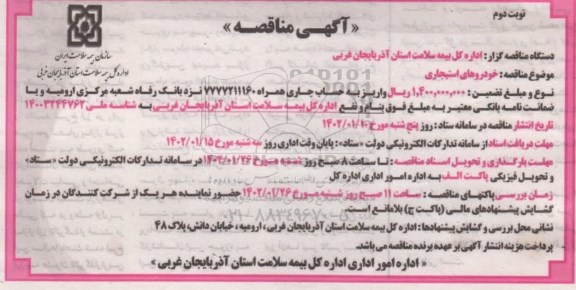 نوبت دوم
« آگهی مناقصه »
سازمان بیمه سلامت ایران
اداره کل بیمه سلامت استان آذربایجان غربی
دستگاه مناقصه گزار : اداره کل بیمه سلامت استان آذربایجان غربی
موضوع مناقصه : خودروهای استیجاری
نوع و مبلغ تضمین : ۱٬۴۰۰٬۰۰۰٬۰۰۰ ریال واریز به حساب جاری همراه ۷۷۷۷۲۱۱۱۶۰ نزد بانک رفاه شعبه مرکزی ارومیه و یا
ضمانت نامه بانکی معتبر به مبلغ فوق بنام و نفع اداره کل بیمه سلامت استان آذربایجان غربی به شناسه ملی ۱۴۰۰۳۲۴۴۷۶۲
تاریخ انتشار مناقصه در سامانه ستاد : روز پنج شنبه مورخ ۱۴۰۲/۰۱/۱۰
مهلت دریافت اسناد از سامانه تدارکات الکترونیکی دولت «ستاد» : پایان وقت اداری روز سه شنبه مورخ ۱۴۰۲/۰۱/۱۵
مهلت بارگذاری و تحویل اسناد مناقصه : تا ساعت ۸ صبح روز شنبه مورخ ۱۴۰۲/۰۱/۲۶ در سامانه تدارکات الکترونیکی دولت «ستاد»
و تحویل فیزیکی پاکت الف به اداره امور اداری اداره کل
زمان بررسی پاکتهای مناقصه : ساعت ۱۱ صبح روز شنبه مورخ ۱۴۰۲/۰۱/۲۶ حضور نماینده هر یک از شرکت کنندگان در زمان
گشایش پیشنهادهای مالی (پاکت ج) بلامانع است.
نشانی محل بررسی و گشایش پیشنهادها : اداره کل بیمه سلامت استان آذربایجان غربی ، ارومیه ، خیابان دانش، پلاک ۴۸
پرداخت هزینه انتشار آگهی بر عهده برنده مناقصه می باشد.
« اداره امور اداری اداره کل بیمه سلامت استان آذربایجان غربی »